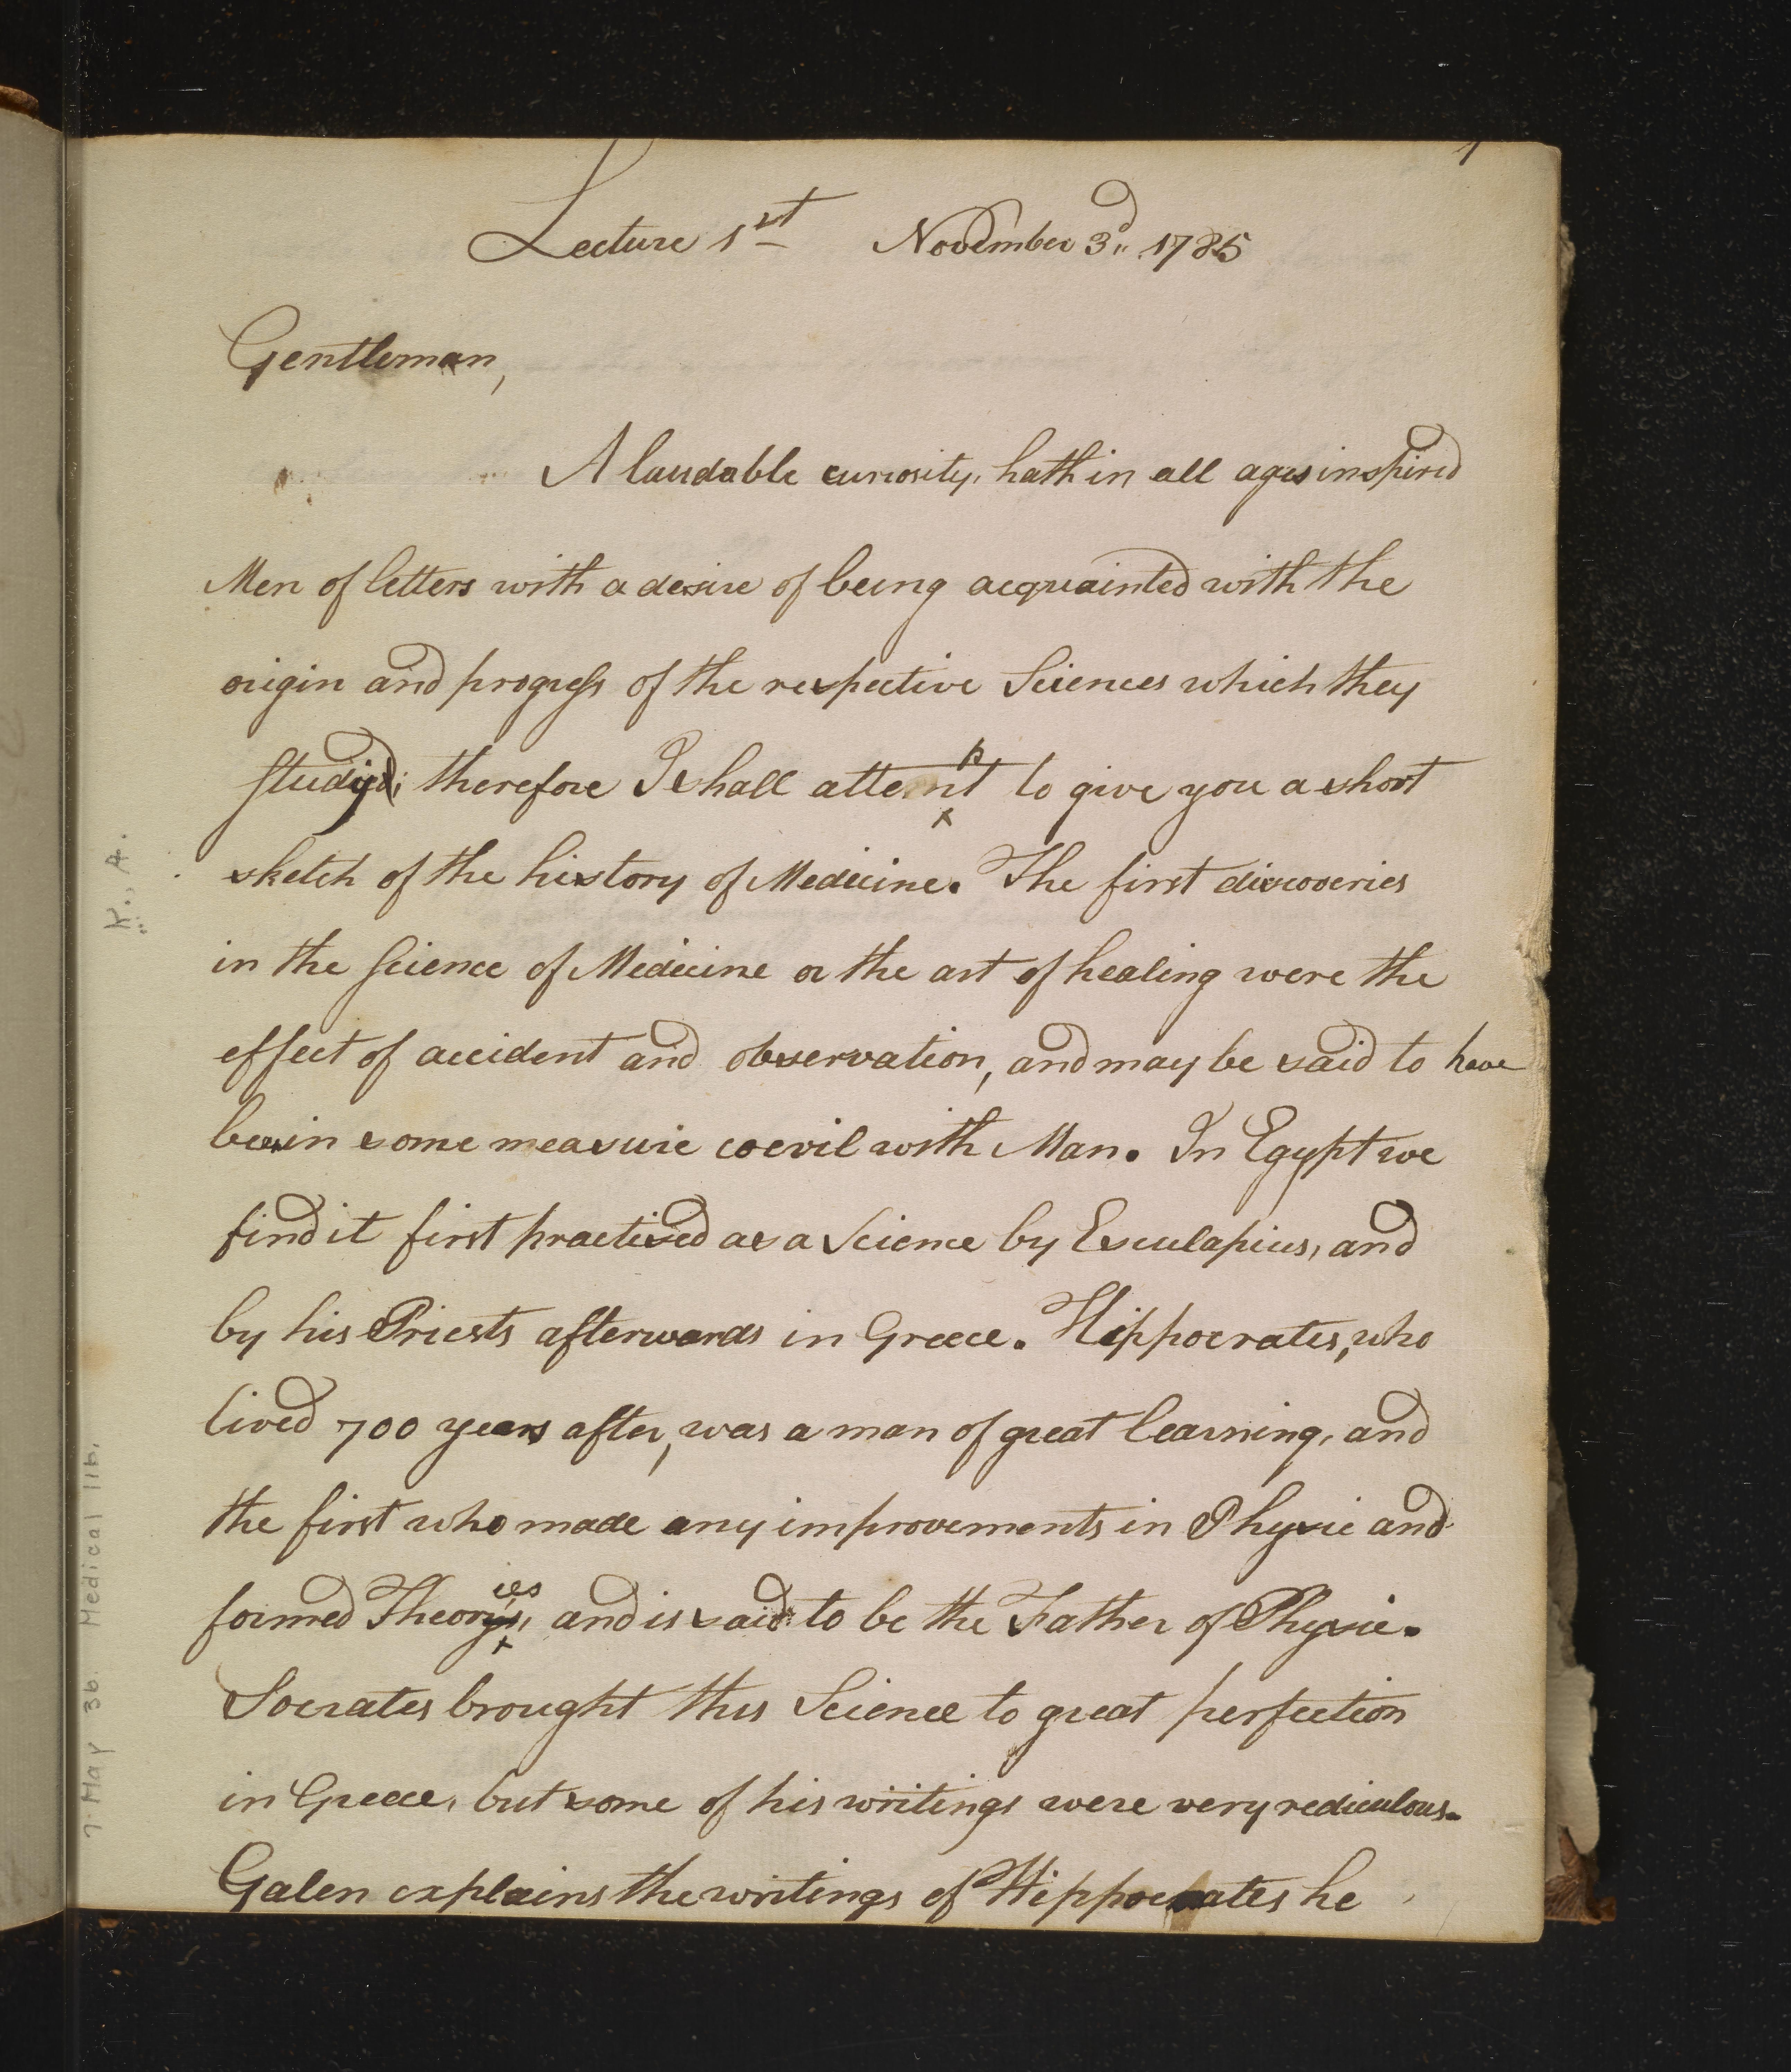 1
Lecture 1st November 3d. 1785
Gentleman,
A laudable curiosity, hath in all ages inspired
Men of letters with a desire of being acquainted with the
origin and progress of the respective Sciences which they
studyed; therefore I shall attempt to give you a short
sketch of the history of Medicine. The first discoveries
in the science of Medicine or the art of healing were the
effect of accident and observation, and may be said to have
been in some measure coevil with Man. In Egypt we
find it first practised as a Science by Esculapius, and
by his Priests afterwards in Greece. Hippocrates, who
lived 700 years after, was a man of great learning, and
the first who made any improvements in Physic and
formed Theories, and is said to be the Father of Physic.
Socrates brought this Science to great perfection
in Greece, but some of his writings were very rediculous.
Galen explains the writings of Hippocrates he
K., A.
7 May 36. Medical lib.